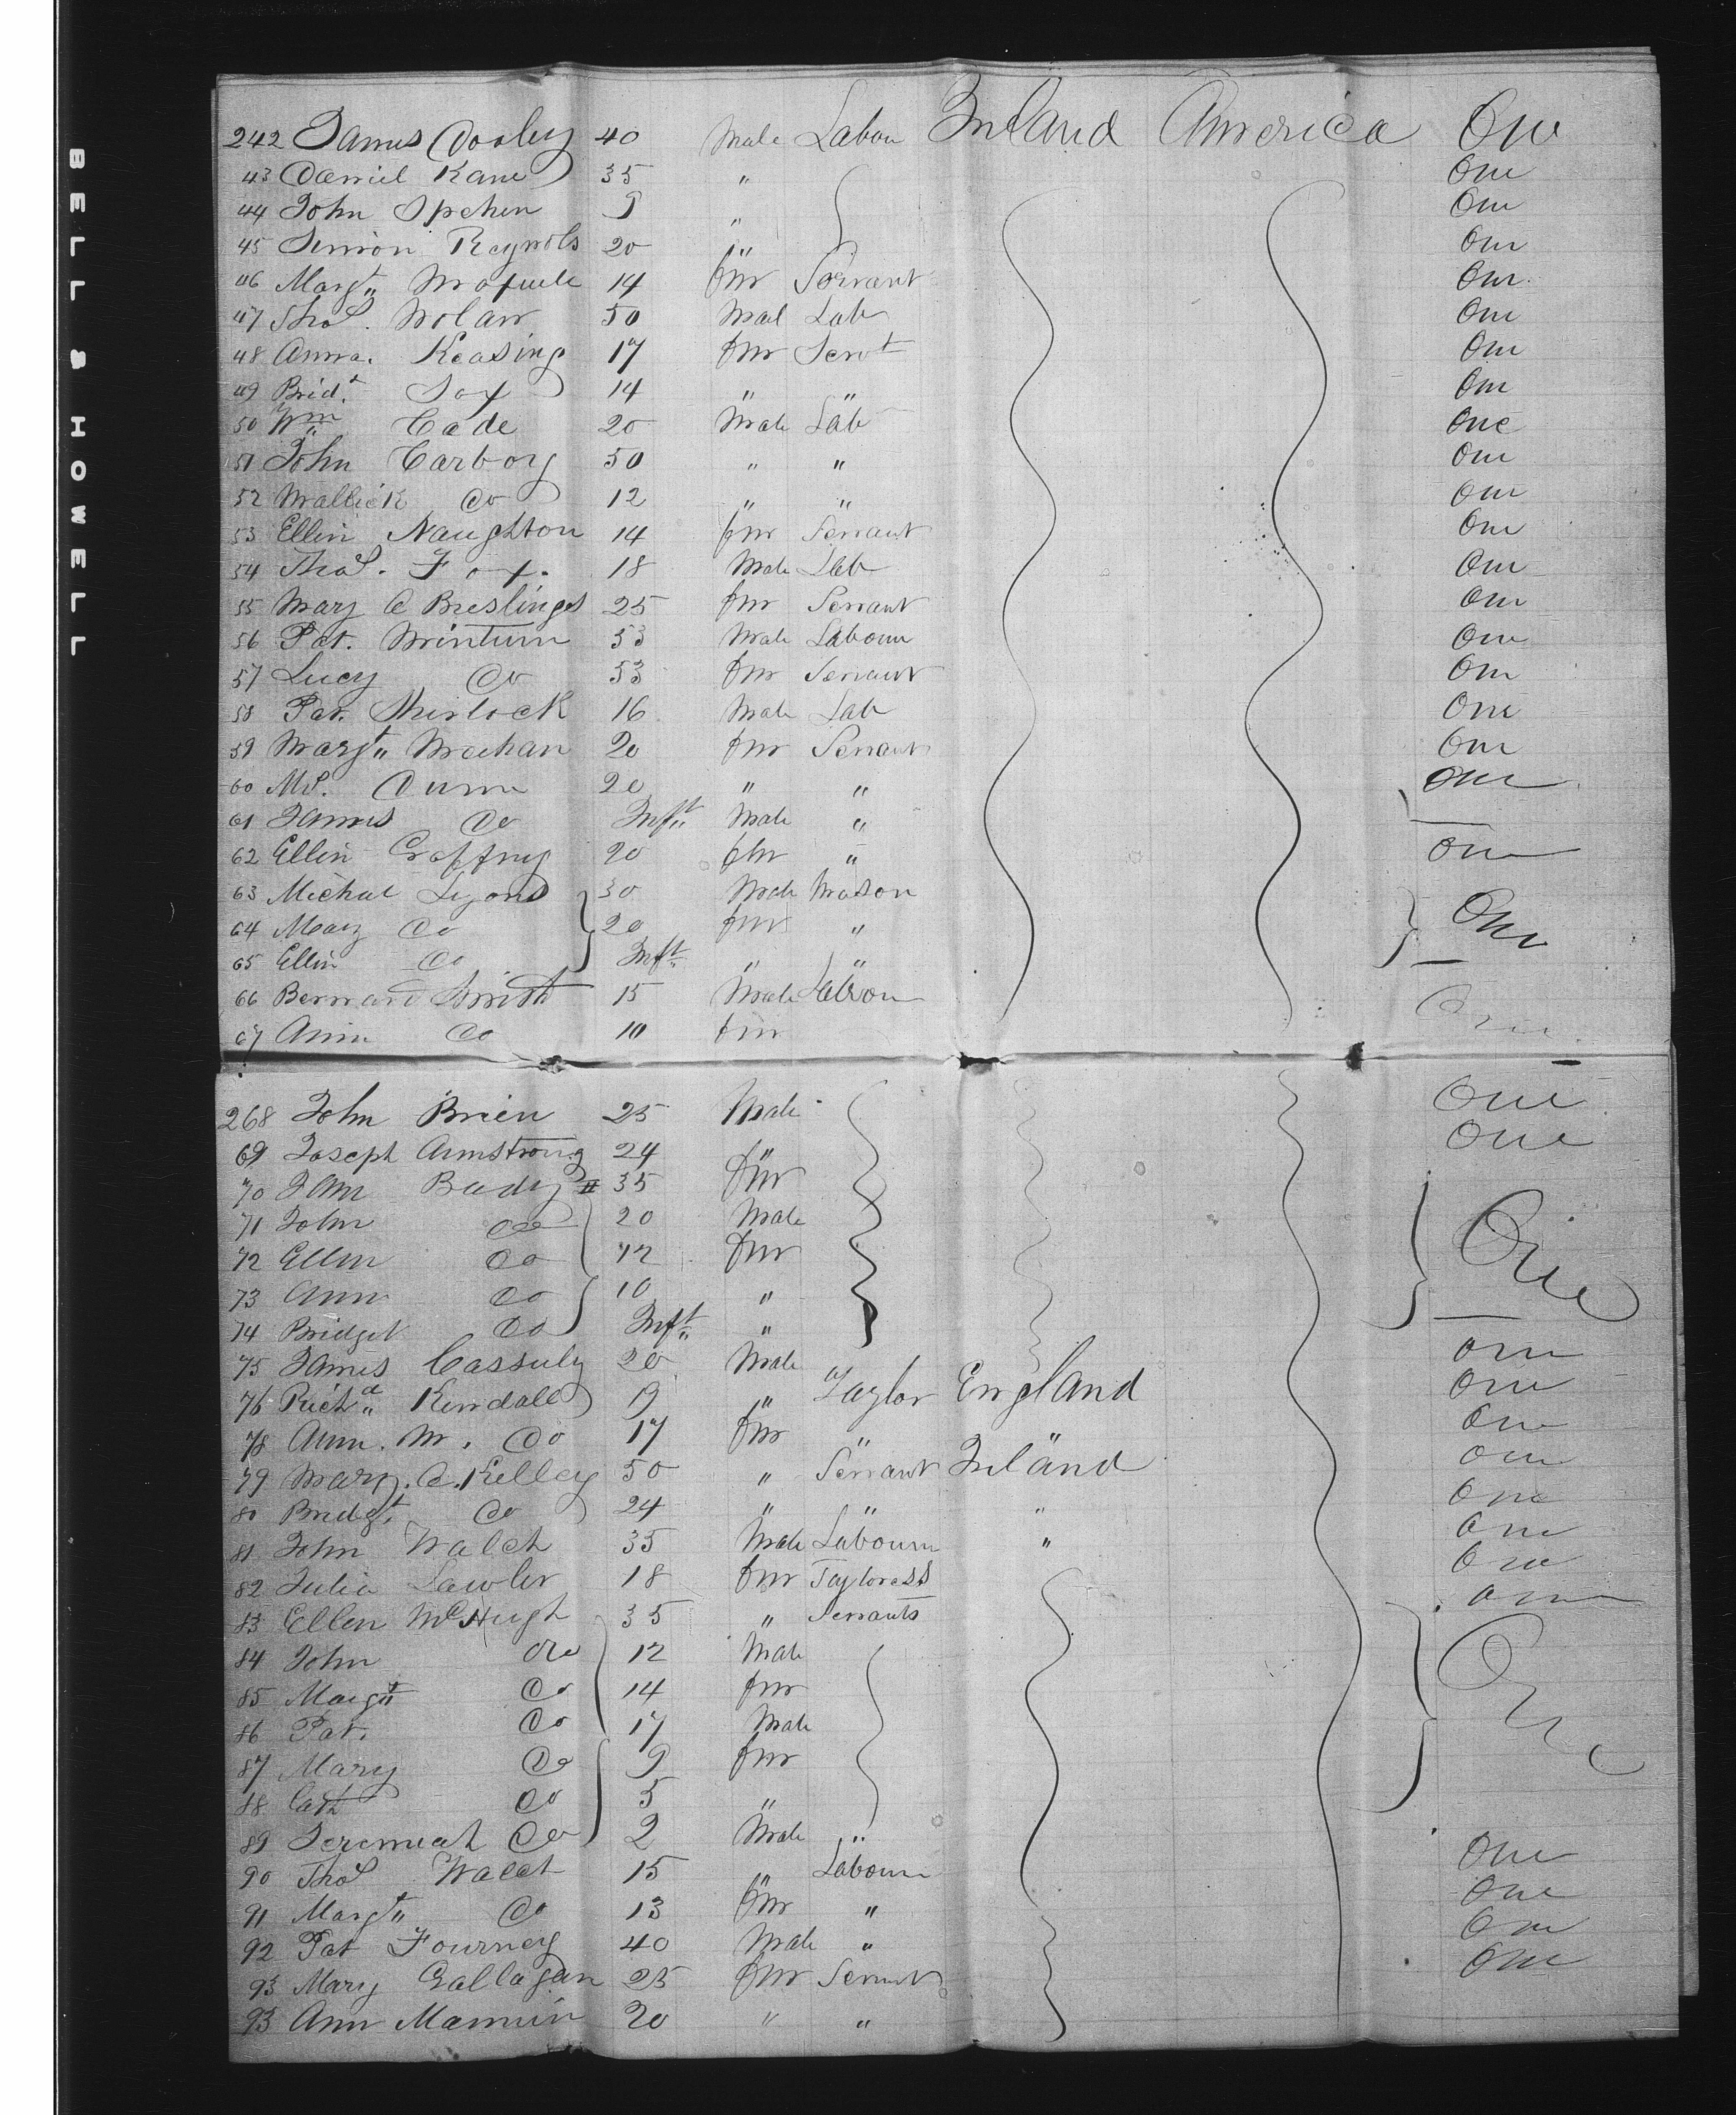 BELL & HOWELL
242 James Dooley 40 Male Labou Ireland America One
43 Daniel Kane 35 " One
44 John 9 " One
45 Simon Reynols 20 " One
46 Margt 14 fm Servant One
47 Thos. Nolan 50 Mal Lab One
48 Anna. Keasing 17 fm Servt One
49 Bridt Fox 14 " " One
50 Wm Cade 20 Male Lab One
51 John Carboy 50 " " One
52 Do 12 " " One
53 Ellin Naughton 14 fm Servant One
54 Thos. Fox. 18 Male Lab One
55 Mary 25 fm Servant One
56 Pat. Minturn 53 Male Labour One
57 Lucy Do 53 fm Servant One
58 Pat. Shirlock 16 Male Lab One
59 Margt Meehan 20 fm Servant One
60 Dunn 20 " " One
61 James Do Inft Male "
62 Ellin 20 fm " One
63 Michal Lyons 30 Male Mason
64 Mary Do 20 fm " One
65 Ellin Do Inft " "
66 Bernard Smith 15 Male Labour One
67 Ann Do 10 fm
268 John Brien 25 Male One
69 Joseph Armstrong 24 " One
70 Jam Bady 35 fm
71 John Do 20 Male
72 Ellen Do 12 fm One
73 Ann Do 10 "
74 Bridget Do Inft "
75 James Cassuly 20 Male One
76 Richd Kendall 19 " Taylor England One
78 Ann. M. Do 17 fm " " One
79 Mary. C. Kelley 50 " Servant Ireland One
80 Bridgt. Do 24 " " " One
81 John Walch 35 Male Labourr " One
82 Julia Lawler 18 fm Tayloress One
83 Ellen McHugh 35 " Servants One
84 John Do 12 Male
85 Margt Do 14 fm One
86 Pat. Do 17 Male
87 Mary Do 9 fm
88 Cath Do 5 "
89 Jeremiah Do 2 Male "
90 Thos Walch 15 " Labourr One
91 Margt Do 13 fm " One
92 Pat Fourney 40 Male " One
93 Mary Gallagan 25 fm Servant One
93 Ann Mannin 20 " "